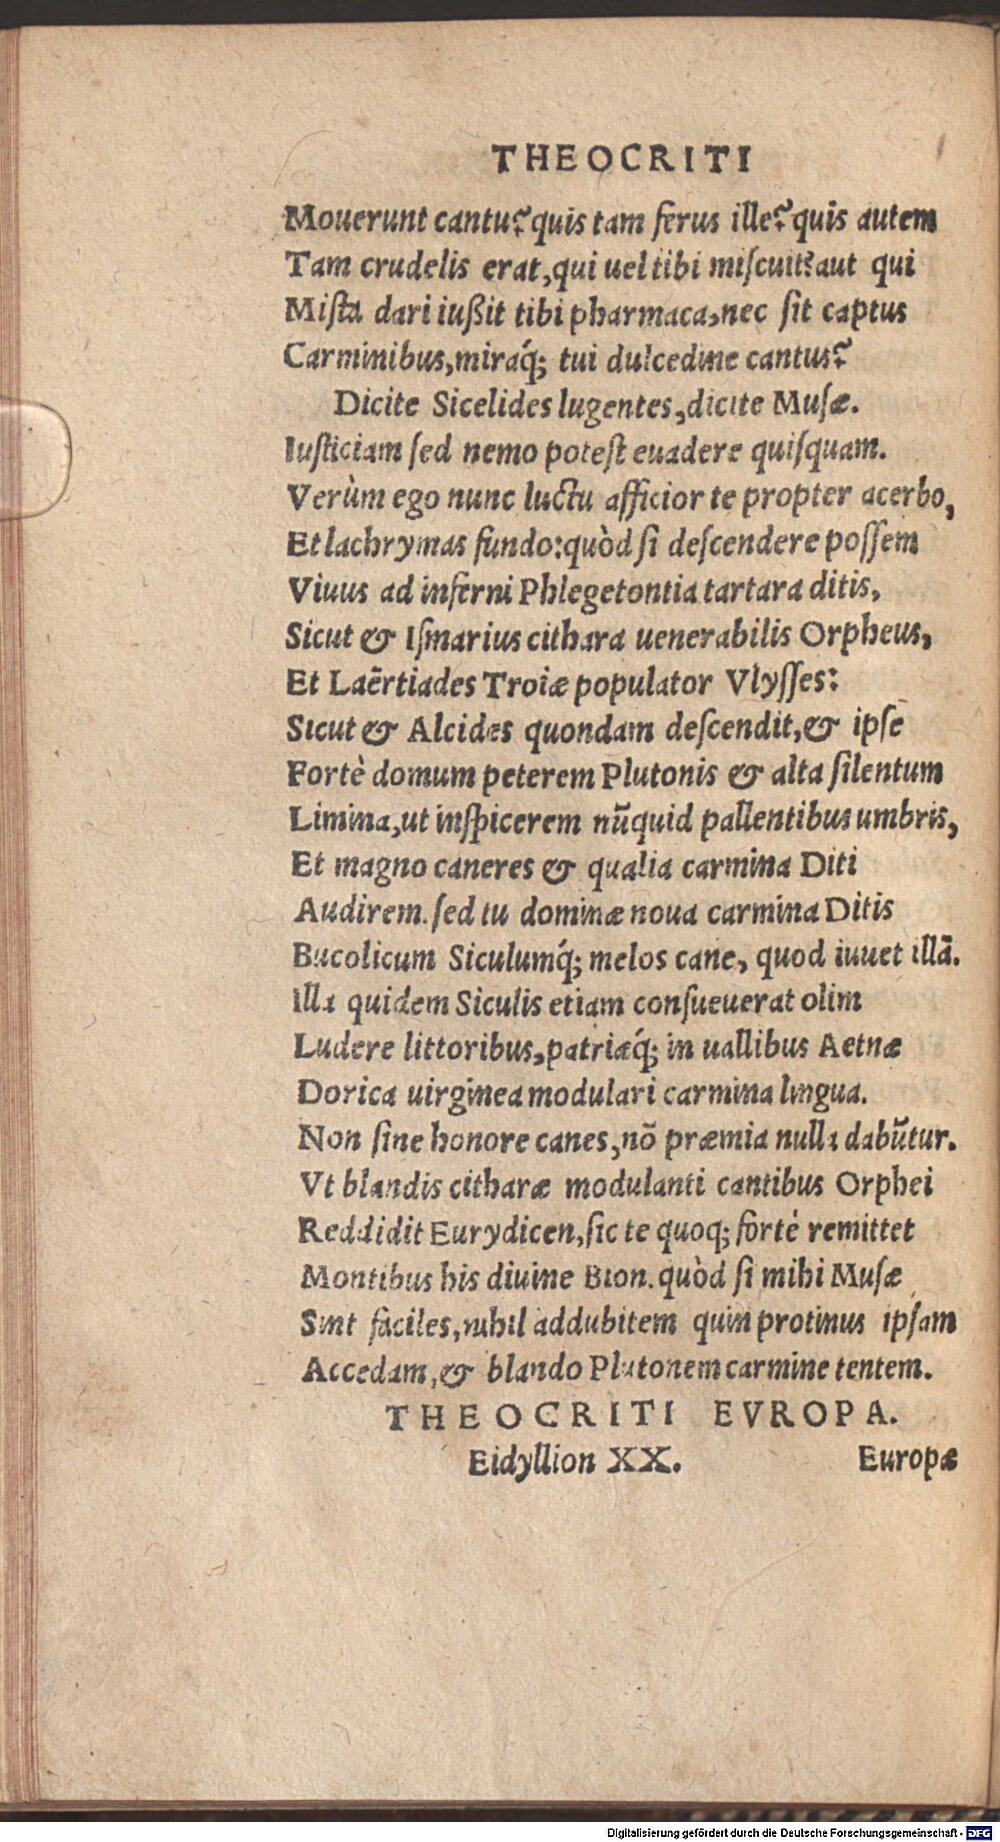 THEOCRITI
Mouerunt cantu? quis tam ferus ille? quis autem
Tam crudelis erat, qui uel tibi miſcuit? aut qui
Miſta dari iußit tibi pharmaca, nec ſit captus
Carminibus, miraq́; tui dulcedine cantus?
Dicite Sicelides lugentes, dicite Muſæ.
Iuſticiam ſed nemo poteſt euadere quiſquam.
Verùm ego nunc luctu afficior te propter acerbo,
Et lachrymas fundo: quòd ſi deſcendere poſſem
Viuus ad inferni Phlegetontia tartara ditis,
Sicut & Iſmarius cithara uenerabilis Orpheus,
Et Laërtiades Troiæ populator Vlyſſes:
Sicut & Alcides quondam deſcendit, & ipſe
Fortè domum peterem Plutonis & alta ſilentum
Limina, ut inſpicerem nũquid pallentibus umbris,
Et magno caneres & qualia carmina Diti
Audirem. ſed tu dominæ noua carmina Ditis
Bucolicum Siculumq́; melos cane, quod iuuet illã.
Illa quidem Siculis etiam conſueuerat olim
Ludere littoribus, patriæq́; in uallibus Aetnæ
Dorica uirginea modulari carmina lingua.
Non ſine honore canes, nõ præmia nulla dabũtur.
Vt blandis citharæ modulanti cantibus Orphei
Reddidit Eurydicen, ſic te quoq; fortè remittet
Montibus his diuine Bion. quòd ſi mihi Muſæ
Sint faciles, nihil addubitem quin protinus ipſam
Accedam, & blando Plutonem carmine tentem.
THEOCRITI EVROPA.
Eidyllion XX. Europæ
Digitalisierung gefördert durch die Deutsche Forschungsgemeinschaft - DFG